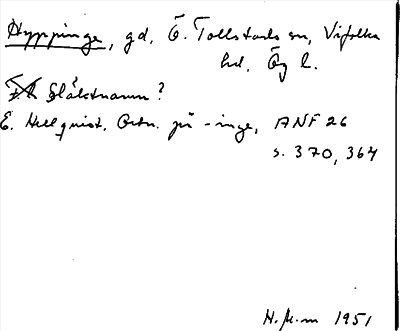 Hyppinge, gd, Ö. Tollstads sn, Vifolka
hd, Ög l.
Släktnamn?
E. Hellquist. Ortn. på -inge, ANF 26
s. 370, 364
1951